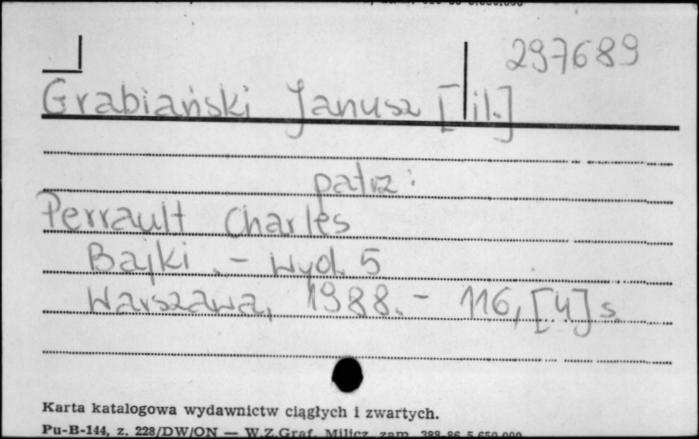 297689
Grabiański Janusz [il.]
patrz:
Perrault Charles
Bajki. - Wyd. 5
Warszawa, 1988. - 116, [4] s.
Karta katalogowa wydawnictw ciągłych i zwartych.
Pu-B-144, z. 228/DW/ON — W.Z.Graf. Milicz zam. 388-86 5.650.000